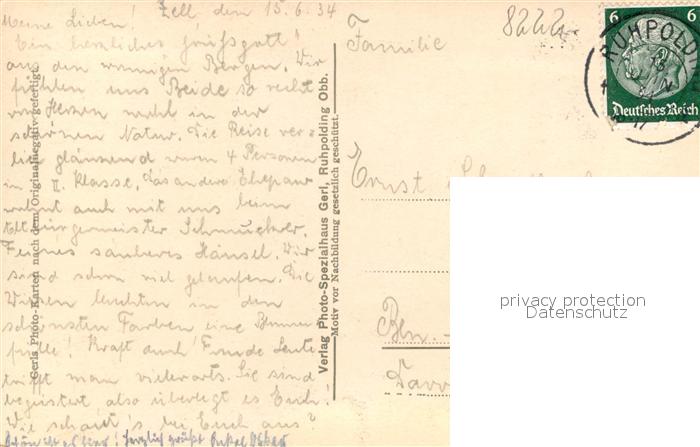 Zell, den 15.6.34
Meine Lieben!
Ein herzliches Grüßgott!
aus den sonnigen Bergen. Wir
fühlen uns Beide so recht
von Herzen wohl in der
schönen Natur. Die Reise ver
lief glänzend waren 4 Personen
in II. Klasse. Das andere Ehepaar
wohnt auch mit uns beim
Altbürgermeister Schmucker.
Feines sauberes Häusel. Wir
sind schon viel gelaufen. Die
Wiesen leuchten in den
schönsten Farben eine Blumen
fülle! Kraft durch Freude Leute
trifft man vielerorts. Sie sind
begeistert also überlegt es Euch!
Wie schaut's bei Euch aus?
herzlich grüßt Onkel Oskar
Gerls Photo-Karten nach dem Originalnegativ gefertigt.
Verlag Photo-Spezialhaus Gerl, Ruhpolding Obb.
Motiv vor Nachbildung gesetzlich geschützt.
8222
Familie
Ernst
Bln.-
6 6
Deutsches Reich
RUHPOLDIN
privacy protection
Datenschutz